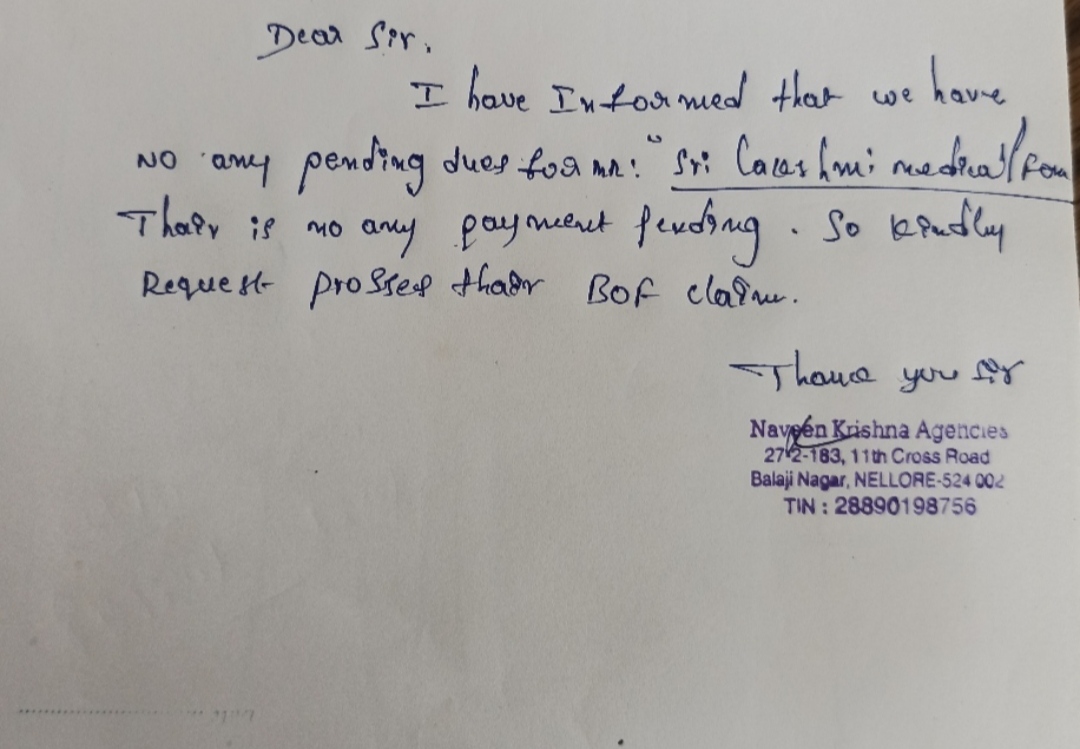 Dear Sir.
I have Informed that we have
NO any pending dues for mr: " Sri Laxshmi medical/
Thair is no any payment pending. So kindly
Request prosses thair BOF claim.
Thank you sir
Naveen Krishna Agencies
27-2-183, 11th Cross Road
Balaji Nagar, NELLORE-524 002
TIN : 28890198756